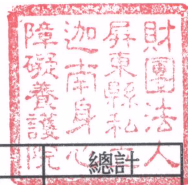 財團法人
屏東縣私
迦南身心
障礙養護院
總計